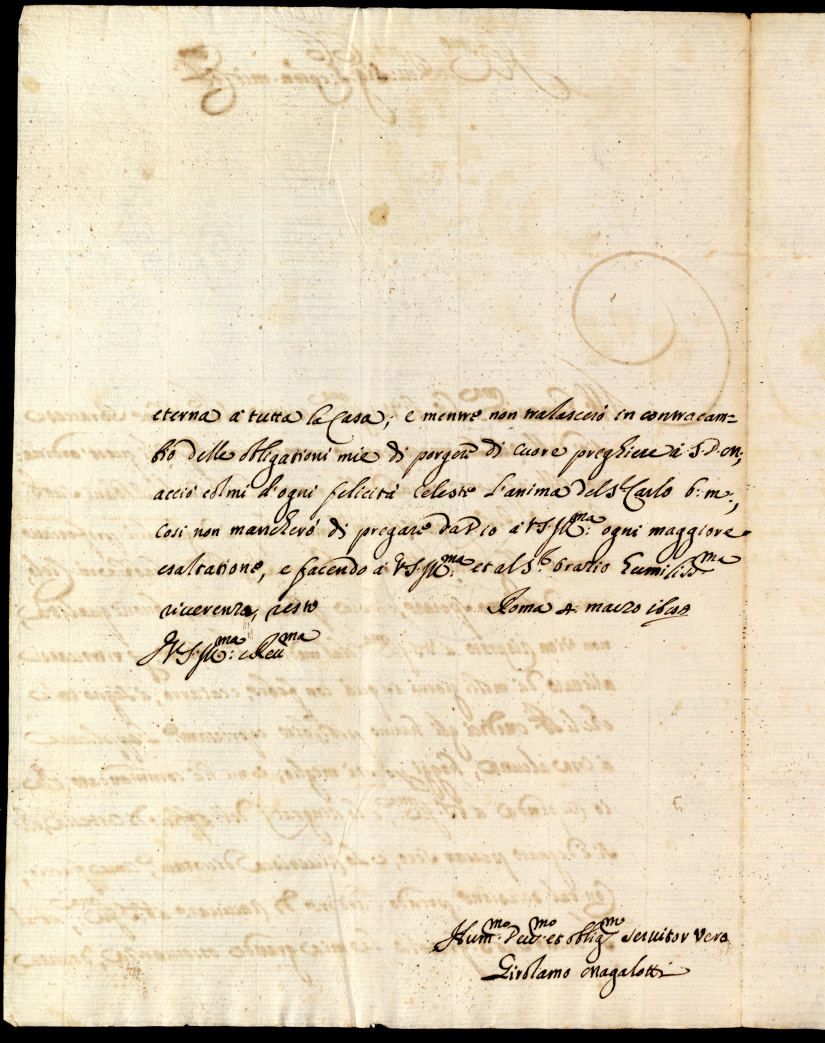 eterna à tutta la Casa; e mentre non tralascerò in contracam=
bio delle obligationi mie di porgere di cuore preghiere à S. D. M.,
acciò colmi d'ogni felicità celeste l'anima del S.r Carlo b. m.,
così non mancherò di pregare da Dio à V. S. Ill.ma ogni maggiore
esaltatione, e facendo à V. S. Ill.ma et al S.r Orazio humiliss.ma
riverenza, resto Roma 4. marzo
Di V. S. Ill.ma e Rev.ma
Hum.mo Dev.mo et oblig.mo servitor vero
Girolamo Magalotti